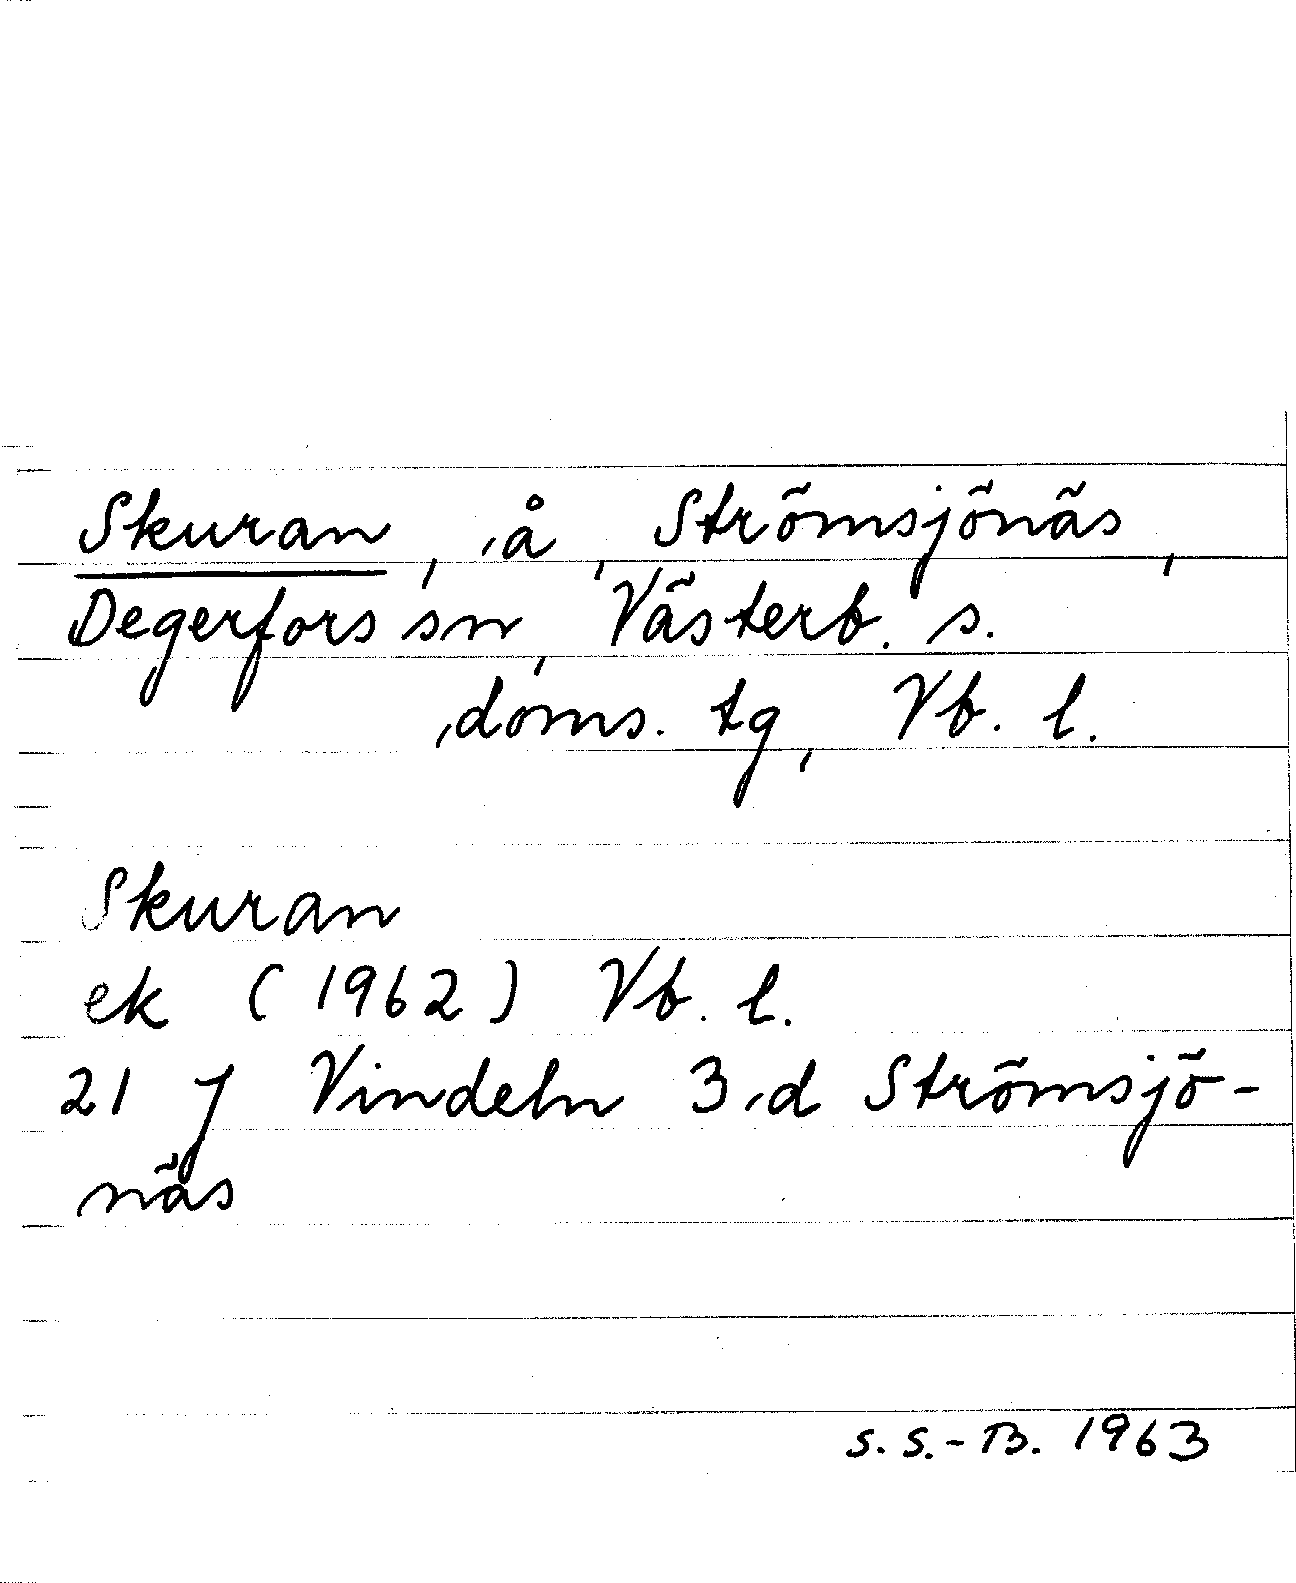 Skuran, å, Strömsjönäs,
Degerfors sn, Västerb. s.
doms. tg, Vb. l.
Skuran
ek (1962) Vb. l.
21 J Vindeln 3 d Strömsjö-
näs
S.S.-B. 1963